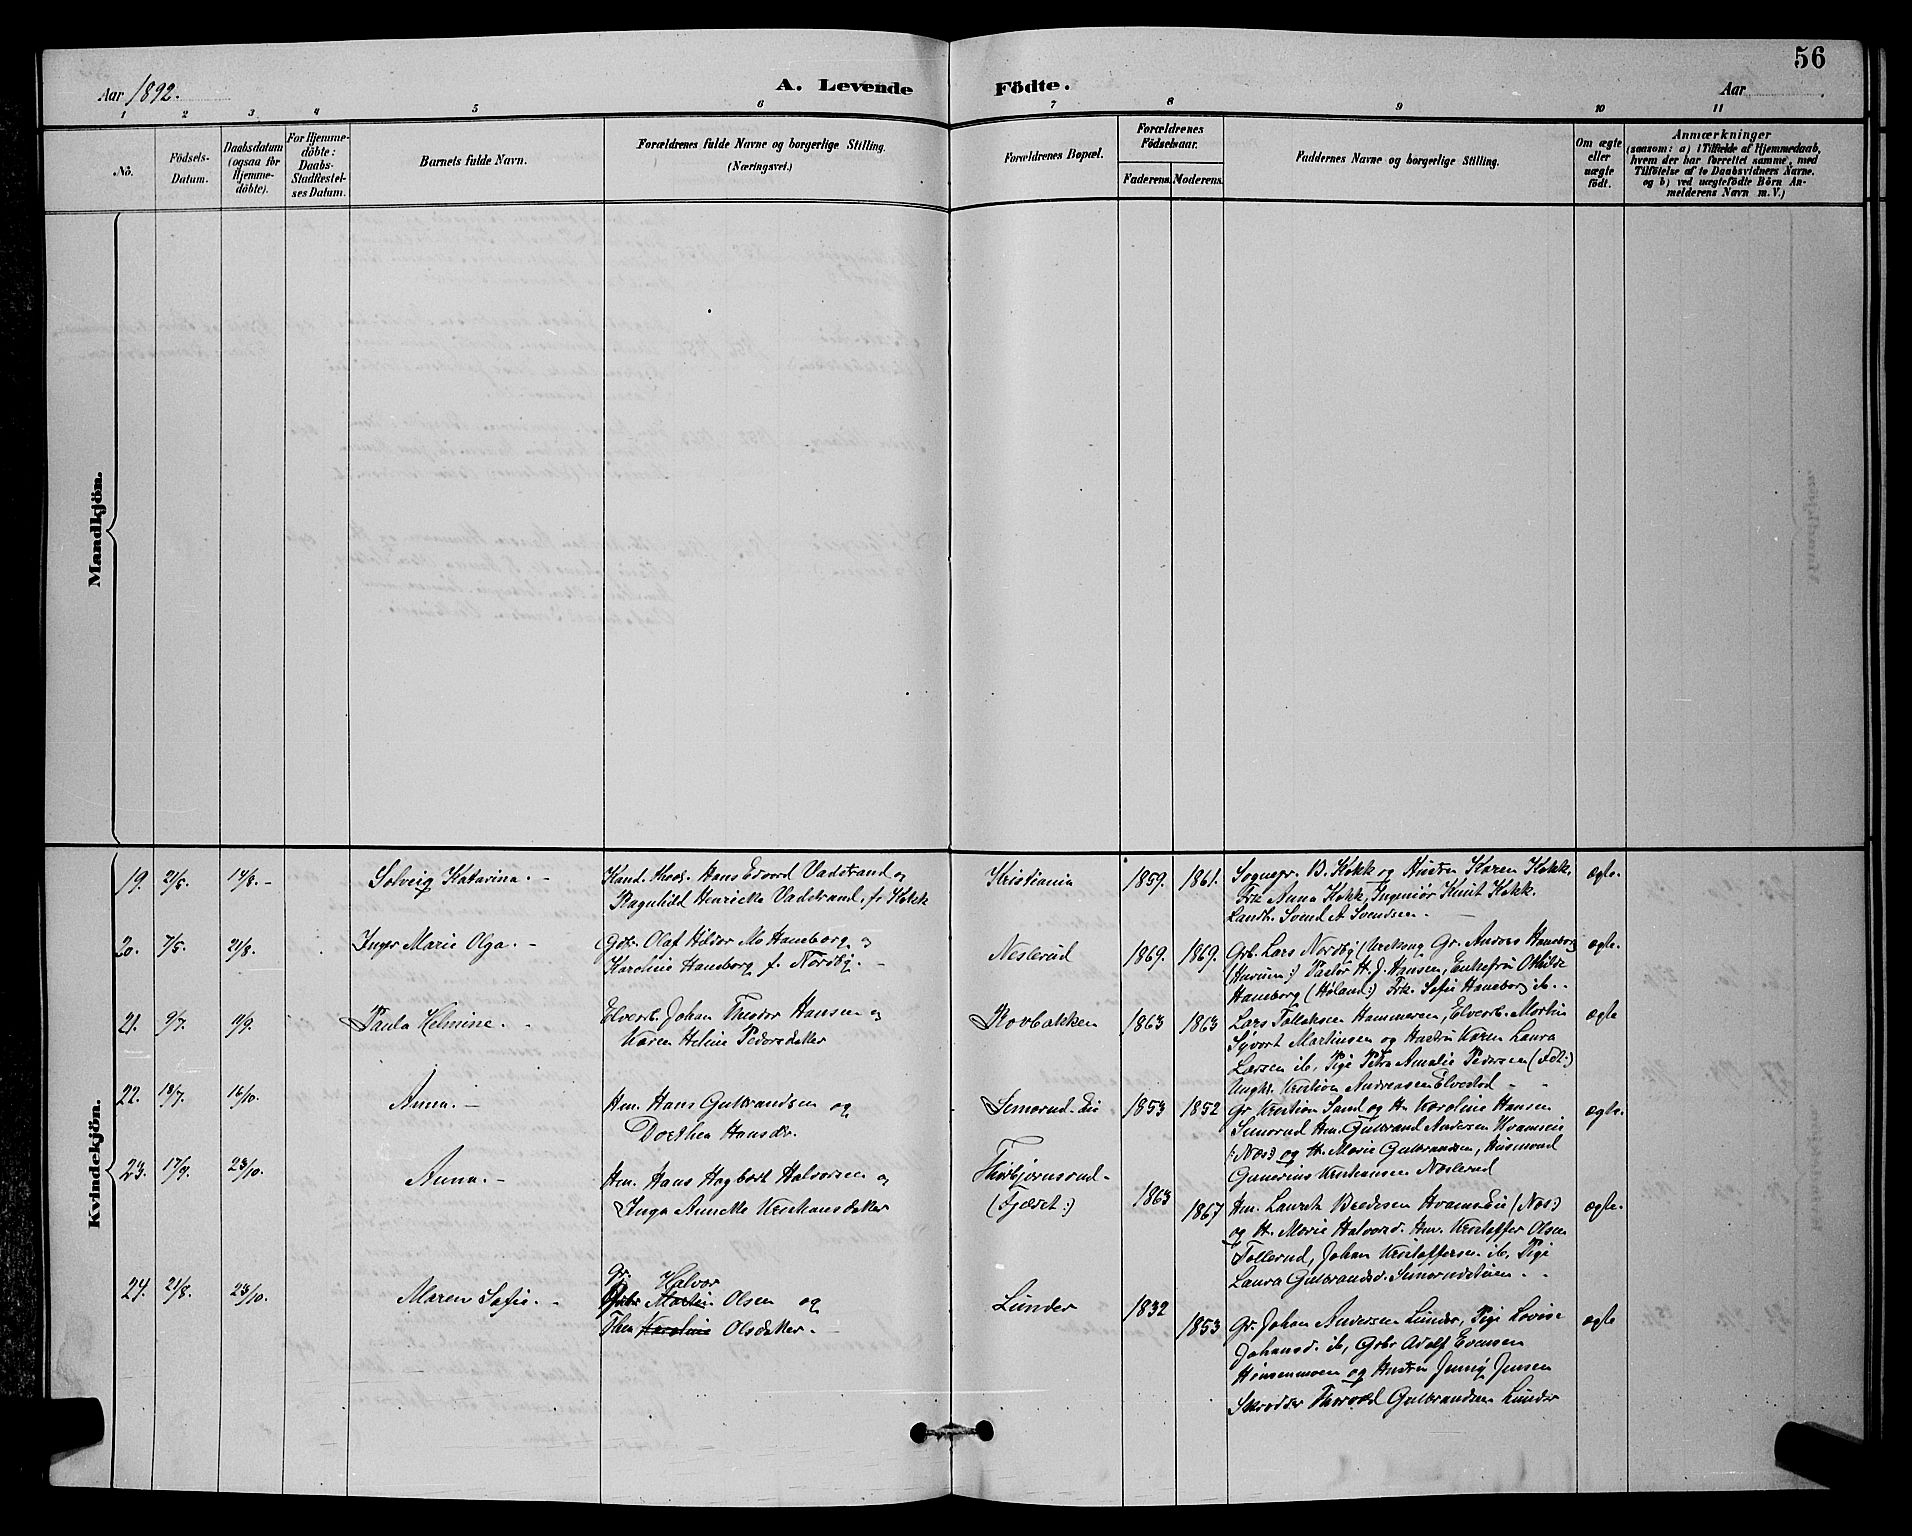 56
Aar 1892.
A. Levende
Födte.
Aar
1 2 3 4 5 6 7 8 9 10 11
No.
Födsels-
Datum.
Daabsdatum
(ogsaa för
Hjemme-
döbte).
For Hjemme-
döbte:
Daabs-
Stadfestel-
ses Datum.
Barnets fulde Navn.
Forældrenes fulde Navne og borgerlige Stilling.
(Næringsvei.)
Forældrenes Bopæl.
Forældrenes
Födselsaar.
Faderens.
Moderens.
Faddernes Navne og borgerlige Stilling.
Om ægte
eller
uægte
födt.
Anmærkninger
(saasom: a) i Tilfælde af Hjemmedaab,
hvem der har forrettet samme, med
Tilföielse af to Daabsvidners Navne.
og b) ved uægtefödte Börn An-
melderens Navn m. V.)
Mandkjön.
Kvindekjön.
19. 21/6. 14/8.- Solveig Katarina. -
Kand. Hans Edvard Vadstrand og
Ragnhild Henrikke Vadstrand, f. Kokk
Kristiania 1859. 1861.
Sognepr. B. Kokk og Hustru Karen Kokk,
Frk Anna Kokk, Ingeniör Knut Kokk.
Landh. Svend A Svendsen. -
ægte.
20. 7/5. 21/8. Inger Marie Olga. -
Olaf Hildor Mo Haneborg og
Karoline Haneborg f. Nordby. -
Neslerud 1869. 1869.
Grb. Lars Nordby (Urskoug Gr. Anders Haneborg
(Hurum:) Pastor H. J. Hansen, Enkefru Othilde
Haneborg (Høland:) Frk. Sofie Haneborg ib. -
ægte.
21. 9/7. 11/9. Paula Helmine. -
Elverb. Johan Theodor Hansen og
Karen Heline Pedersdatter
Rovbakken 1863 1863
Lars Tollefsen Hammeren, Elverb. Martin
Syvert Martinsen og Hustru Karen Laura
Larsen ib, Pige Petra Amalie Pedersen
Ungk. Kristian Andreasen Elvestad -
ægte
22. 18/7. 16/10. Anna. -
Hm. Hans Gulbrandsen og
Dorthea Hansdr.
Semerud-Eie 1853 1852
Gr Kristian Sand og H. Karoline Hansen
Semerud Hm. Gulbrand Andersen Hvamseie
(Næs) og H. Marie Gulbrandsen, Husmand
Gunerius Kristiansen Neslerud
ægte.
23. 17/9. 23/10. Anna. -
Hm. Hans Hagbart Halvorsen og
Inga Annette Kristiansdatter
Thorbjørnsrud-
1863 1867
Hm. Laurits Bredesen Hvamseie (Næs)
og H. Marie Halvorsd. Hm. Kristoffer Olsen
Tollerud, Johan Kristoffersen ib, Pige
Laura Gulbrandsd. Semerudstuen. -
ægte.
24. 21/8. 23/10. Maren Sofie. -
Gr. Halvor
Gbr Martin Olsen og
Thea Karoline Olsdatter. -
Lunder 1832 1853
Gr. Johan Andersen Lunder, Pige Lovise
Johansd. ib, Grbr Adolf Evensen
Hønsenmoen og Hustru Jenny Jensen
Skrædder Thorvald Gulbrandsen Lunder
ægte